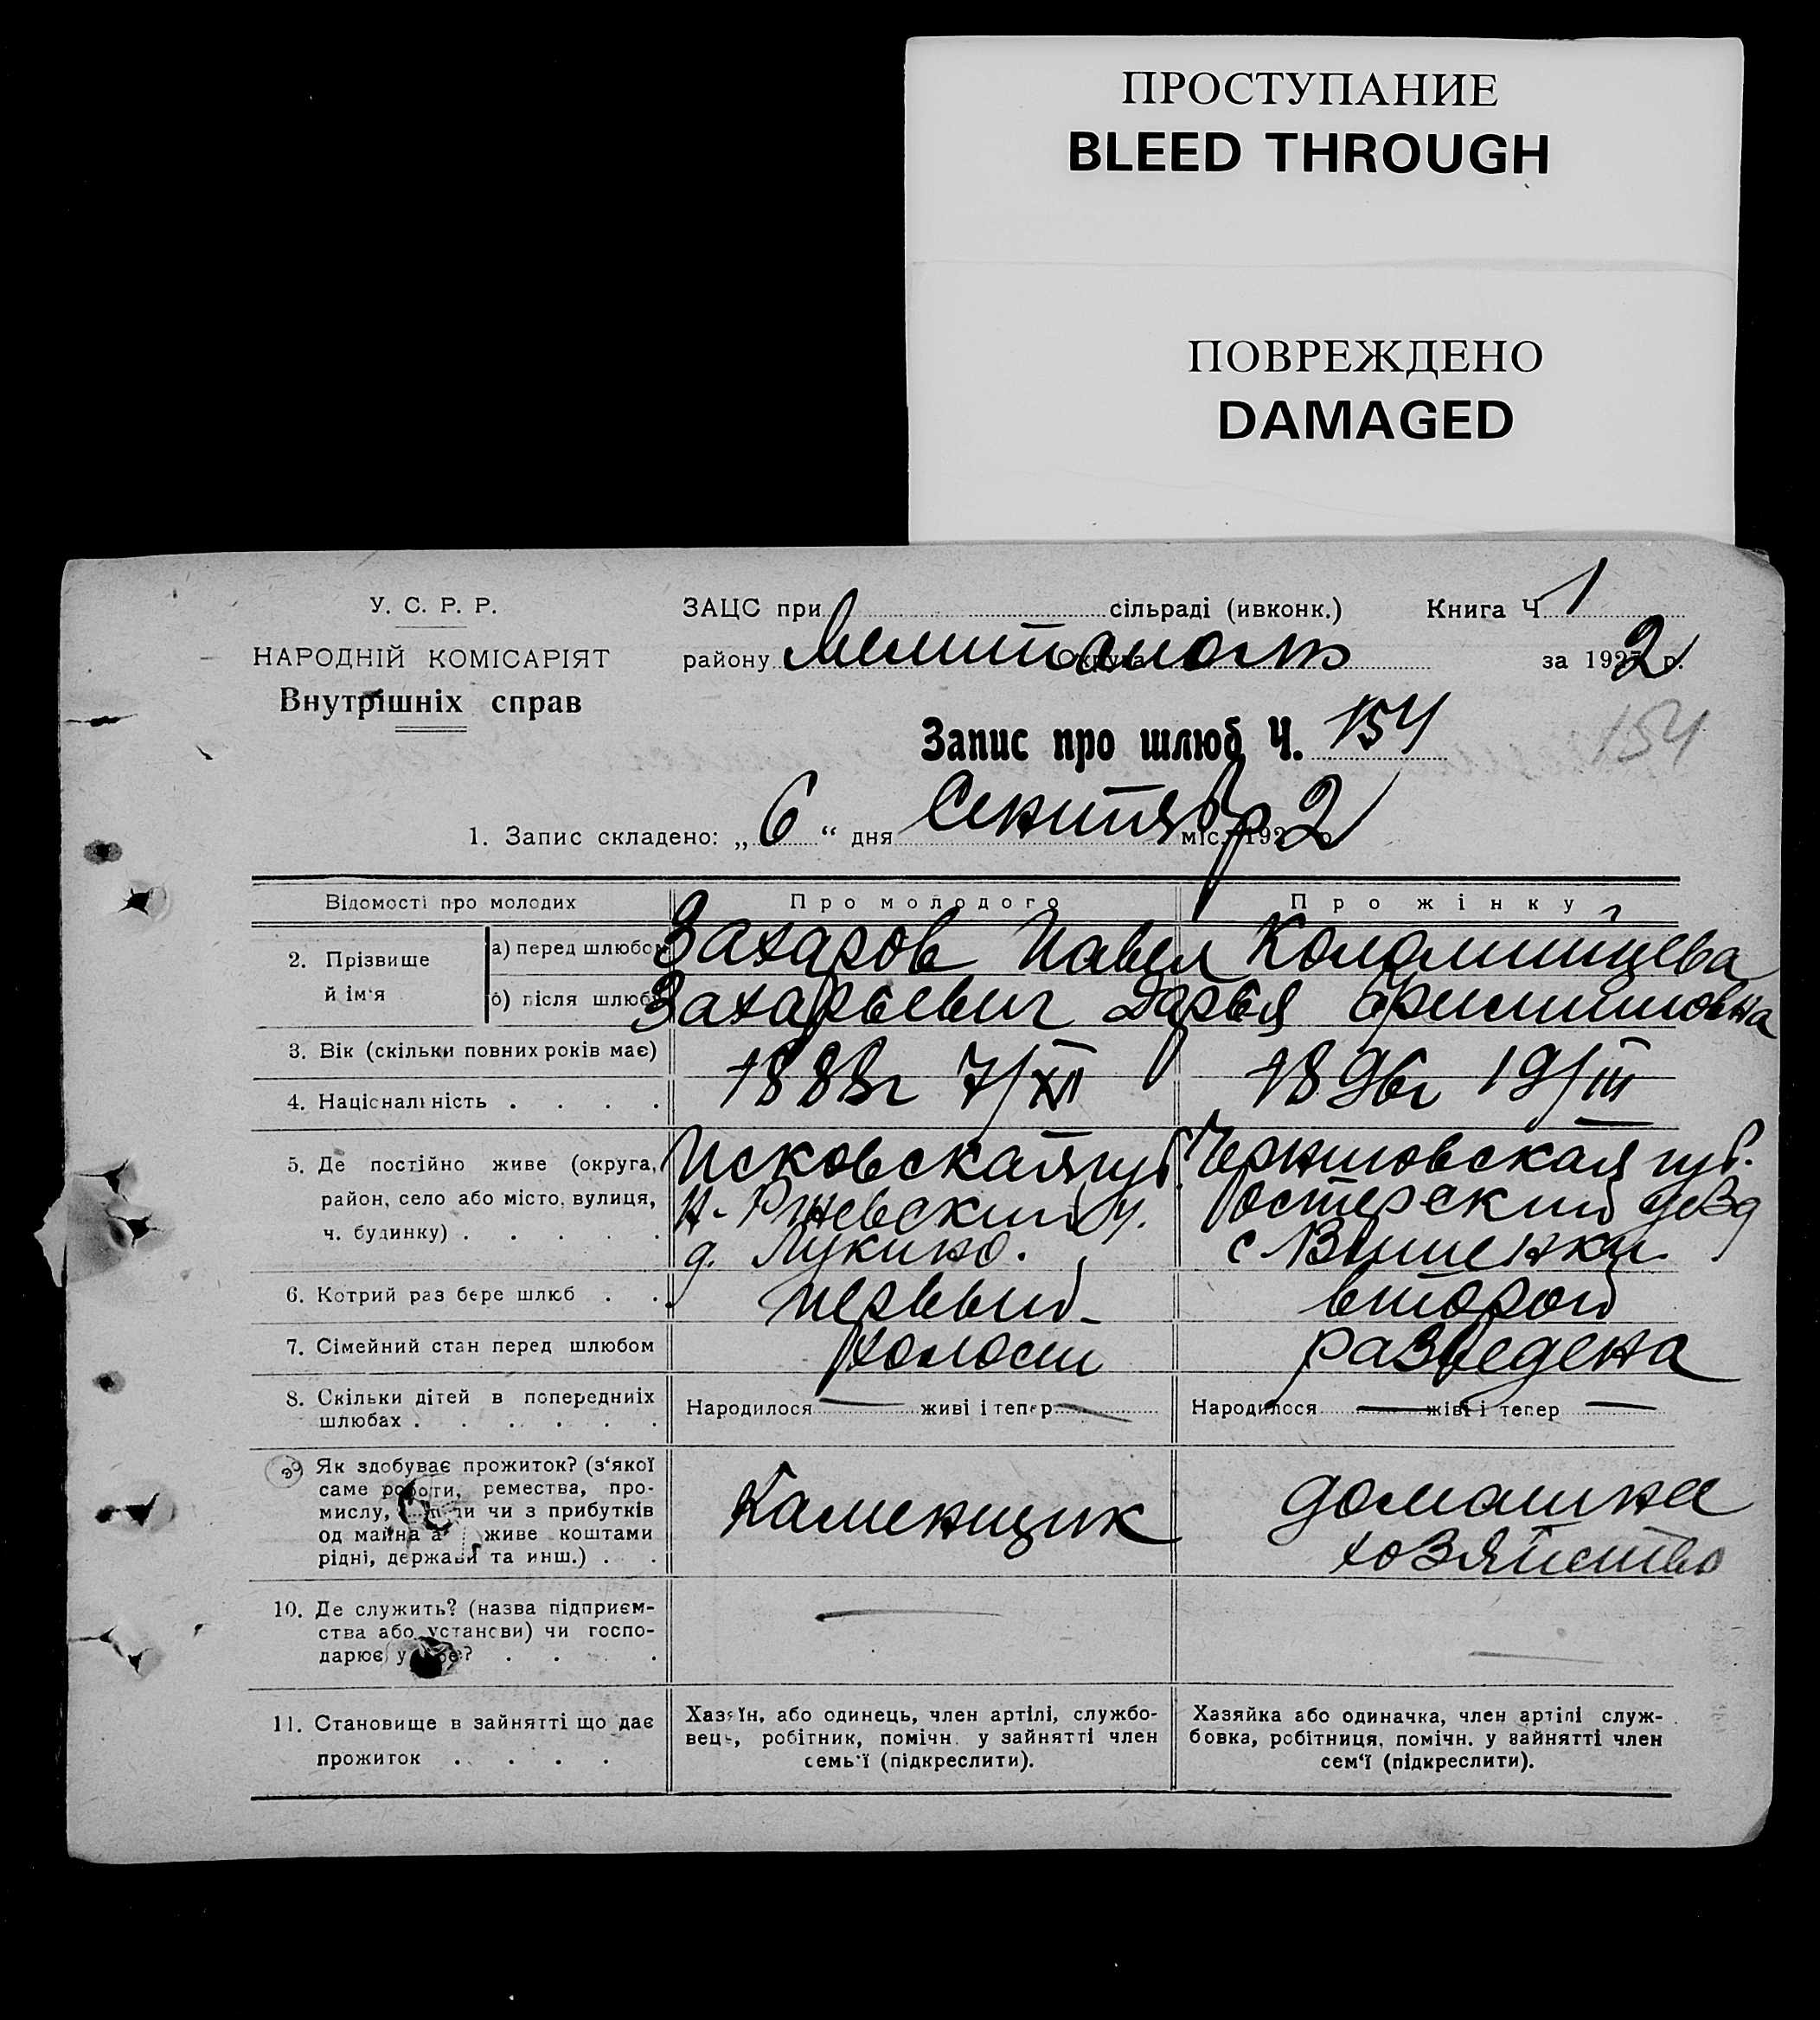 ПРОСТУПАНИЕ
BLEED THROUGH
ПОВРЕЖДЕНО
DAMAGED
У. С. Р. Р.
НАРОДНІЙ КОМІСАРІЯТ
Внутрішніх справ
ЗАЦС при сільраді (ивконк.) Книга Ч. 1
району Округа за 1922 р.
Запис про шлюб Ч. 154
154
1. Запис складено: „ 6 “ дня Сентябр міс. 1922
Відомості про молодих
Про молодого
Про жінку
2. Прізвище й ім‘я
а) перед шлюбом
б) після шлюбу
Захаров Павел
Захарьевич
Коломийцева
Дарья
3. Вік (скільки повних років має)
1888г 7/XII
1896г 19/III
4. Національність . . . .
5. Де постійно живе (округа,
район, село або місто, вулиця,
ч. будинку) . . . . .
Псковская губ.
Н-Ржевский у.
д. Лукино.
Черниговская губ.
Остерский уезд
с Вишенки
6. Котрий раз бере шлюб . .
первый
второй
7. Сімейний стан перед шлюбом
холост
разведена
8. Скільки дітей в попередниіх
шлюбах . . . . . .
Народилося — живі і тепер —
Народилося — живі і тепер —
Як здобуває прожиток? (з‘якої
саме роботи, ремества, про-
мислу, чи з прибутків
од майна а живе коштами
рідні, держави та инш.) . .
Каменщик
домашнее
хозяйство
10. Де служить? (назва підприєм-
ства або установи) чи госпо-
дарює у себе? . . . .
—
—
11. Становище в зайнятті що дає
прожиток . . . .
Хазяїн, або одинець, член артілі, службо-
вець, робітник, помічн. у зайнятті член
семь‘ї (підкреслити).
Хазяйка або одиначка, член артілі служ-
бовка, робітниця, помічн. у зайнятті член
сем‘ї (підкреслити).